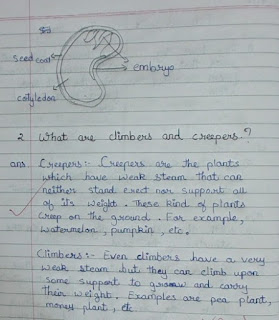 seed coat
embryo
cotyledon
2 What are climbers and creepers.?
ans. Creepers:- Creepers are the plants
which have weak steam that can
neither stand erect nor support all
of its weight. These kind of plants
creep on the ground. For example,
watermelon, pumpkin, etc.
Climbers:- Even climbers have a very
weak steam but they can climb upon
some support to grow and carry
their weight. Examples are pea plant,
money plant, etc